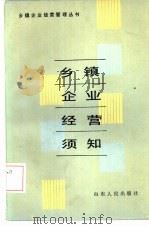 乡镇企业经营管理丛书
乡镇
企业
经营
须知
山东人民出版社